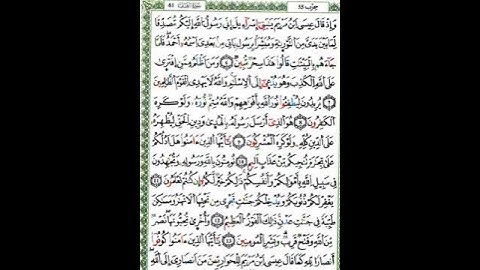 سورة الصف 61
حزب 55
وَإِذْ قَالَ عِيسَى اَبْنُ مَرْيَمَ يَٰبَنِےٓ إِسْرَآءِيلَ إِنِّے رَسُولُ اُللَّهِ إِلَيْكُم مُّصَدِّقاً
لِّمَا بَيْنَ يَدَيَّ مِنَ اَلتَّوْرَيٰةِ وَمُبَشِّراً بِرَسُولٍ يَاتِے مِنۢ بَعْدِيَ اَسْمُهُۥٓ أَحْمَدُ فَلَمَّا
جَآءَهُم بِالْبَيِّنَٰتِ قَالُواْ هَٰذَا سِحْرٌ مُّبِينٌ ٦ وَمَنَ اَظْلَمُ مِمَّنِ اِفْتَرَىٰ
عَلَى اَللَّهِ اِلْكَذِبَ وَهُوَ يُدْعَىٰٓ إِلَى اَلِاسْلَٰمِ وَاللَّهُ لَا يَهْدِے اِلْقَوْمَ اَلظَّٰلِمِينَ
٧ يُرِيدُونَ لِيُطْفِـُٔواْ نُورَ اَللَّهِ بِأَفْوَٰهِهِمْ وَاللَّهُ مُتِمٌّ نُورَهُۥ وَلَوْ كَرِهَ
اَلْكَٰفِرُونَ ٨ هُوَ اَلذِےٓ أَرْسَلَ رَسُولَهُۥ بِالْهُدَىٰ وَدِينِ اِلْحَقِّ لِيُظْهِرَهُۥ
عَلَى اَلدِّينِ كُلِّهِۦ وَلَوْ كَرِهَ اَلْمُشْرِكُونَ ٩ يَٰٓأَيُّهَا اَلذِينَ ءَامَنُواْ هَلَ اَدُلُّكُمْ
عَلَىٰ تِجَٰرَةٍ تُنجِيكُم مِّنْ عَذَابٍ اَلِيمٍ ١٠ تُومِنُونَ بِاللَّهِ وَرَسُولِهِۦ وَتُجَٰهِدُونَ
فِے سَبِيلِ اِللَّهِ بِأَمْوَٰلِكُمْ وَأَنفُسِكُمْ ذَٰلِكُمْ خَيْرٌ لَّكُمُۥٓ إِن كُنتُمْ تَعْلَمُونَ ١١
يَغْفِرْ لَكُمْ ذُنُوبَكُمْ وَيُدْخِلْكُمْ جَنَّٰتٍ تَجْرِے مِن تَحْتِهَا اَلَانْهَٰرُ وَمَسَٰكِنَ
طَيِّبَةً فِے جَنَّٰتِ عَدْنٍ ذَٰلِكَ اَلْفَوْزُ اُلْعَظِيمُ ١٢ وَأُخْرَىٰ تُحِبُّونَهَا نَصْرٌ
مِّنَ اَللَّهِ وَفَتْحٌ قَرِيبٌ وَبَشِّرِ اِلْمُومِنِينَ ١٣ يَٰٓأَيُّهَا اَلذِينَ ءَامَنُواْ كُونُوٓاْ
أَنصَاراً لِّلهِ كَمَا قَالَ عِيسَى اَبْنُ مَرْيَمَ لِلْحَوَارِيِّـۧنَ مَنَ اَنصَارِيَ إِلَى اَللَّهِ